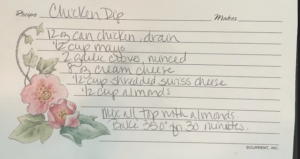 Recipe Chicken Dip Makes
12 oz can chicken, drain
1/2 cup mayo
2 garlic cloves, minced
8 oz cream cheese
1/2 cup shredded swiss cheese
1/2 cup almonds
Mix all, top with almonds
Bake 350° for 30 minutes.
©CURRENT, INC.